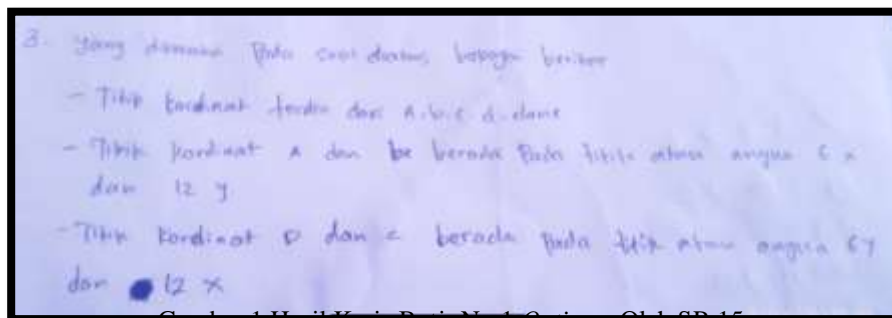 3. yang dimana Pada soal diatas, sebagai berikut
- Titik kordinat terdiri dari A.b.c.d. dan e
- Titik kordinat A dan be berada Pada titik atau angka 6 x
dan 12 y
- Titik kordinat D dan c berada pada titik atau angka 6 y
dan 12 x